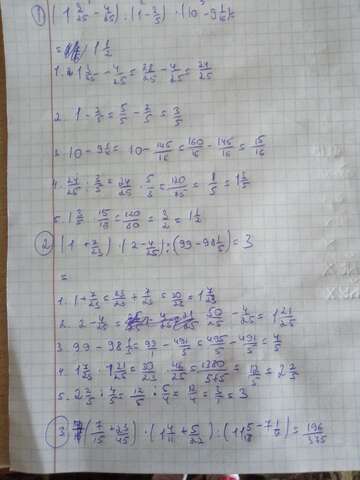 ① (1 3/25 - 4/25) : (1 - 2/5) · (10 - 9 1/16) =
= 1 1/2
1. 1 3/25 - 4/25 = 28/25 - 4/25 = 24/25
2. 1 - 2/5 = 5/5 - 2/5 = 3/5
3. 10 - 9 1/16 = 10 - 145/16 = 160/16 - 145/16 = 15/16
4. 24/25 : 3/5 = 24/25 · 5/3 = 120/75 = 8/5 = 1 3/5
5. 1 3/5 · 15/16 = 120/80 = 3/2 = 1 1/2
② (1 + 7/23) · (2 - 4/25) : (99 - 98 1/5) = 3
=
1. 1 + 7/23 = 23/23 + 7/23 = 30/23 = 1 7/23
2. 2 - 4/25 = 50/25 - 4/25 = 1 21/25
3. 99 - 98 1/5 = 99/1 - 491/5 = 495/5 - 491/5 = 4/5
4. 1 7/23 · 1 21/25 = 30/23 · 46/25 = 1380/575 = 12/5 = 2 2/5
5. 2 2/5 : 4/5 = 12/5 · 5/4 = 12/4 = 3
③ (7/15 + 23/45) · (1 4/11 + 5/22) : (11 5/18 - 7 1/9) = 196/375